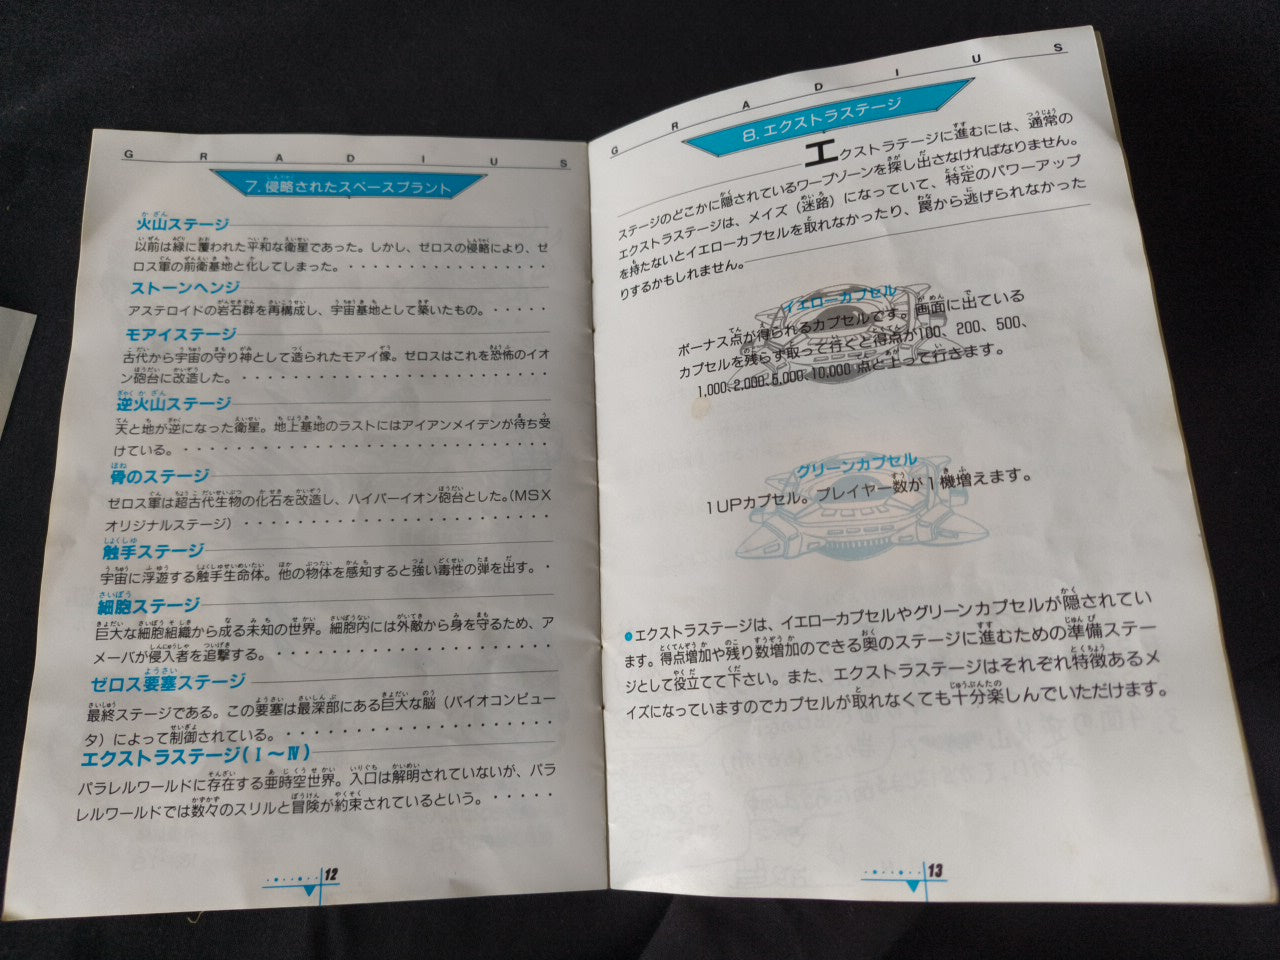 G R A D I U S
7. 侵略されたスペースプラント
火山ステージ
以前は緑に覆われた平和な衛星であった。しかし、ゼロスの侵略により、ゼ
ロス軍の前衛基地と化してしまった。・・・・・・・・・・・・・・・・・
ストーンヘンジ
アステロイドの岩石群を再構成し、宇宙基地として築いたもの。・・・・・
モアイステージ
古代から宇宙の守り神として造られたモアイ像。ゼロスはこれを恐怖のイオ
ン砲台に改造した。・・・・・・・・・・・・・・・・・・・・・・・・・
逆火山ステージ
天と地が逆になった衛星。地上基地のラストにはアイアンメイデンが待ち受
けている。・・・・・・・・・・・・・・・・・・・・・・・・・・・・・
骨のステージ
ゼロス軍は超古代生物の化石を改造し、ハイパーイオン砲台とした。(MSX
オリジナルステージ)・・・・・・・・・・・・・・・・・・・・・・・・
触手ステージ
宇宙に浮遊する触手生命体。他の物体を感知すると強い毒性の弾を出す。・
細胞ステージ
巨大な細胞組織から成る未知の世界。細胞内には外敵から身を守るため、ア
メーバが侵入者を追撃する。・・・・・・・・・・・・・・・・・・・・・
ゼロス要塞ステージ
最終ステージである。この要塞は最深部にある巨大な脳(バイオコンピュー
タ)によって制御されている。・・・・・・・・・・・・・・・・・・・・
エクストラステージ(I～IV)
パラレルワールドに存在する亜時空世界。入口は解明されていないが、パラ
レルワールドでは数々のスリルと冒険が約束されているという。・・・・・
12
G R A D I U S
8. エクストラステージ
エクストラテージに進むには、通常の
ステージのどこかに隠されているワープゾーンを探し出さなければなりません。
エクストラステージは、メイズ(迷路)になっていて、特定のパワーアップ
を持たないとイエローカプセルを取れなかったり、罠から逃げられなかった
りするかもしれません。
イエローカプセル
ボーナス点が得られるカプセルです。画面に出ている
カプセルを残らず取って行くと得点が100、200、500、
1,000、2,000、5,000、10,000点と上って行きます。
グリーンカプセル
1UPカプセル。プレイヤー数が1機増えます。
●エクストラステージは、イエローカプセルやグリーンカプセルが隠されてい
ます。得点増加や残り数増加のできる奥のステージに進むための準備ステー
ジとして役立てて下さい。また、エクストラステージはそれぞれ特徴あるメ
イズになっていますのでカプセルが取れなくても十分楽しんでいただけます。
13